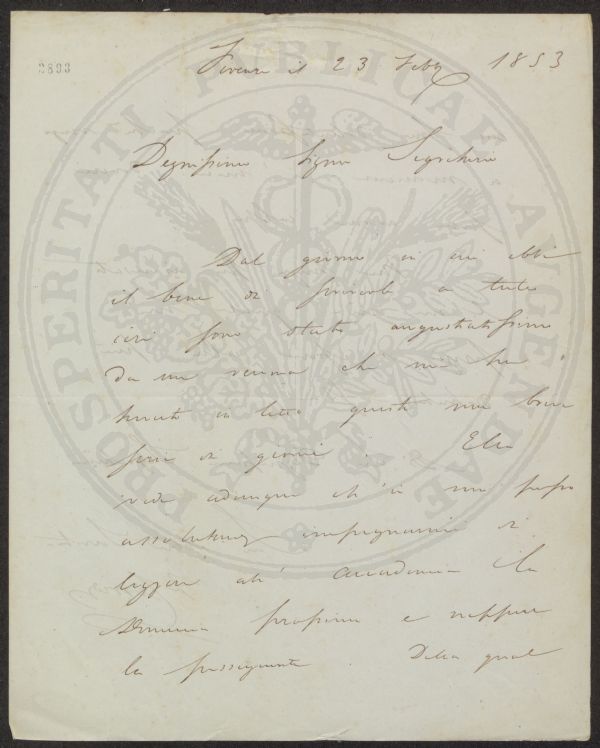 2893
Firenze il 23 Feb 1853
Degnissimo Signor Segretario
Dal giorno in cui ebbi
il bene di scriverle a tutt'
ieri sono stato angustiatissimo
da una che mi ha
tenuto in letto questa non breve
serie di giorni. Ella
vede adunque ch'io non posso
assolutamente impegnarmi di
leggere all' Accademia la
Domenica prossima e neppure
la susseguente. Della qual
PROSPERITATI PUBLICAE AUGENDAE